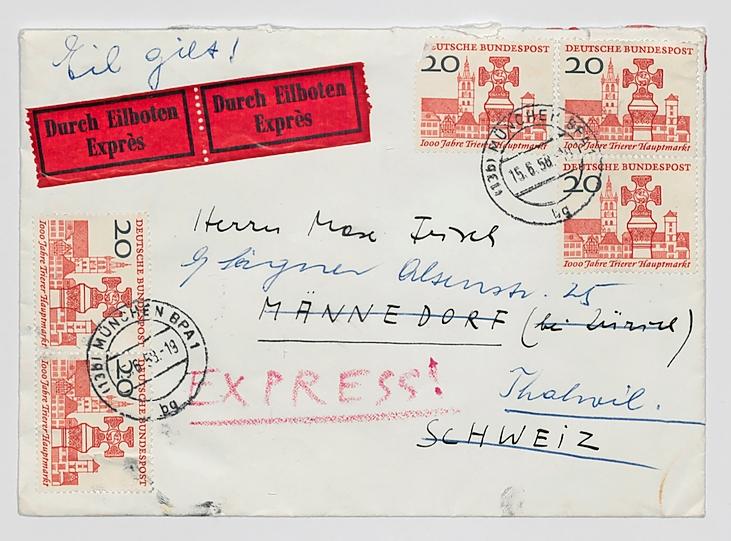 Eil gilt!
Durch Eilboten
Exprès
Durch Eilboten
Exprès
DEUTSCHE BUNDESPOST
20
1000 Jahre Trierer Hauptmarkt
DEUTSCHE BUNDESPOST
20
1000 Jahre Trierer Hauptmarkt
DEUTSCHE BUNDESPOST
20
1000 Jahre Trierer Hauptmarkt
(13b) MÜNCHEN BPA 1
15.6.58.-19
bg
Herrn Max Frisch
Alsenstr. 25
MÄNNEDORF (bei Zürich)
EXPRESS!
Thalwil.
SCHWEIZ
DEUTSCHE BUNDESPOST
20
1000 Jahre Trierer Hauptmarkt
DEUTSCHE BUNDESPOST
20
1000 Jahre Trierer Hauptmarkt
(13b) MÜNCHEN BPA 1
6.58.-19
bg